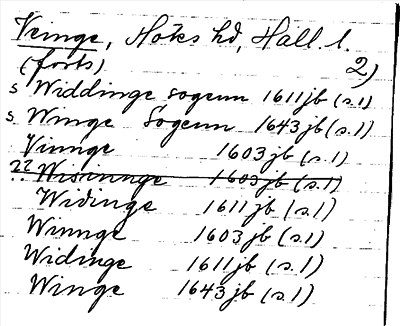 Veinge, Höks hd, Hall. l.
(forts) 2)
s Widdinge sogenn 1611 jb (s. 1)
s. Winge Sogenn 1643 jb (s. 1)
Vinnge 1603 jb (s. 1)
?? Wisinnge 1603 jb (s. 1)
Widinge 1611 jb (s. 1)
Winnge 1603 jb (s. 1)
Widinge 1611 jb (s. 1)
Winge 1643 jb (s. 1)